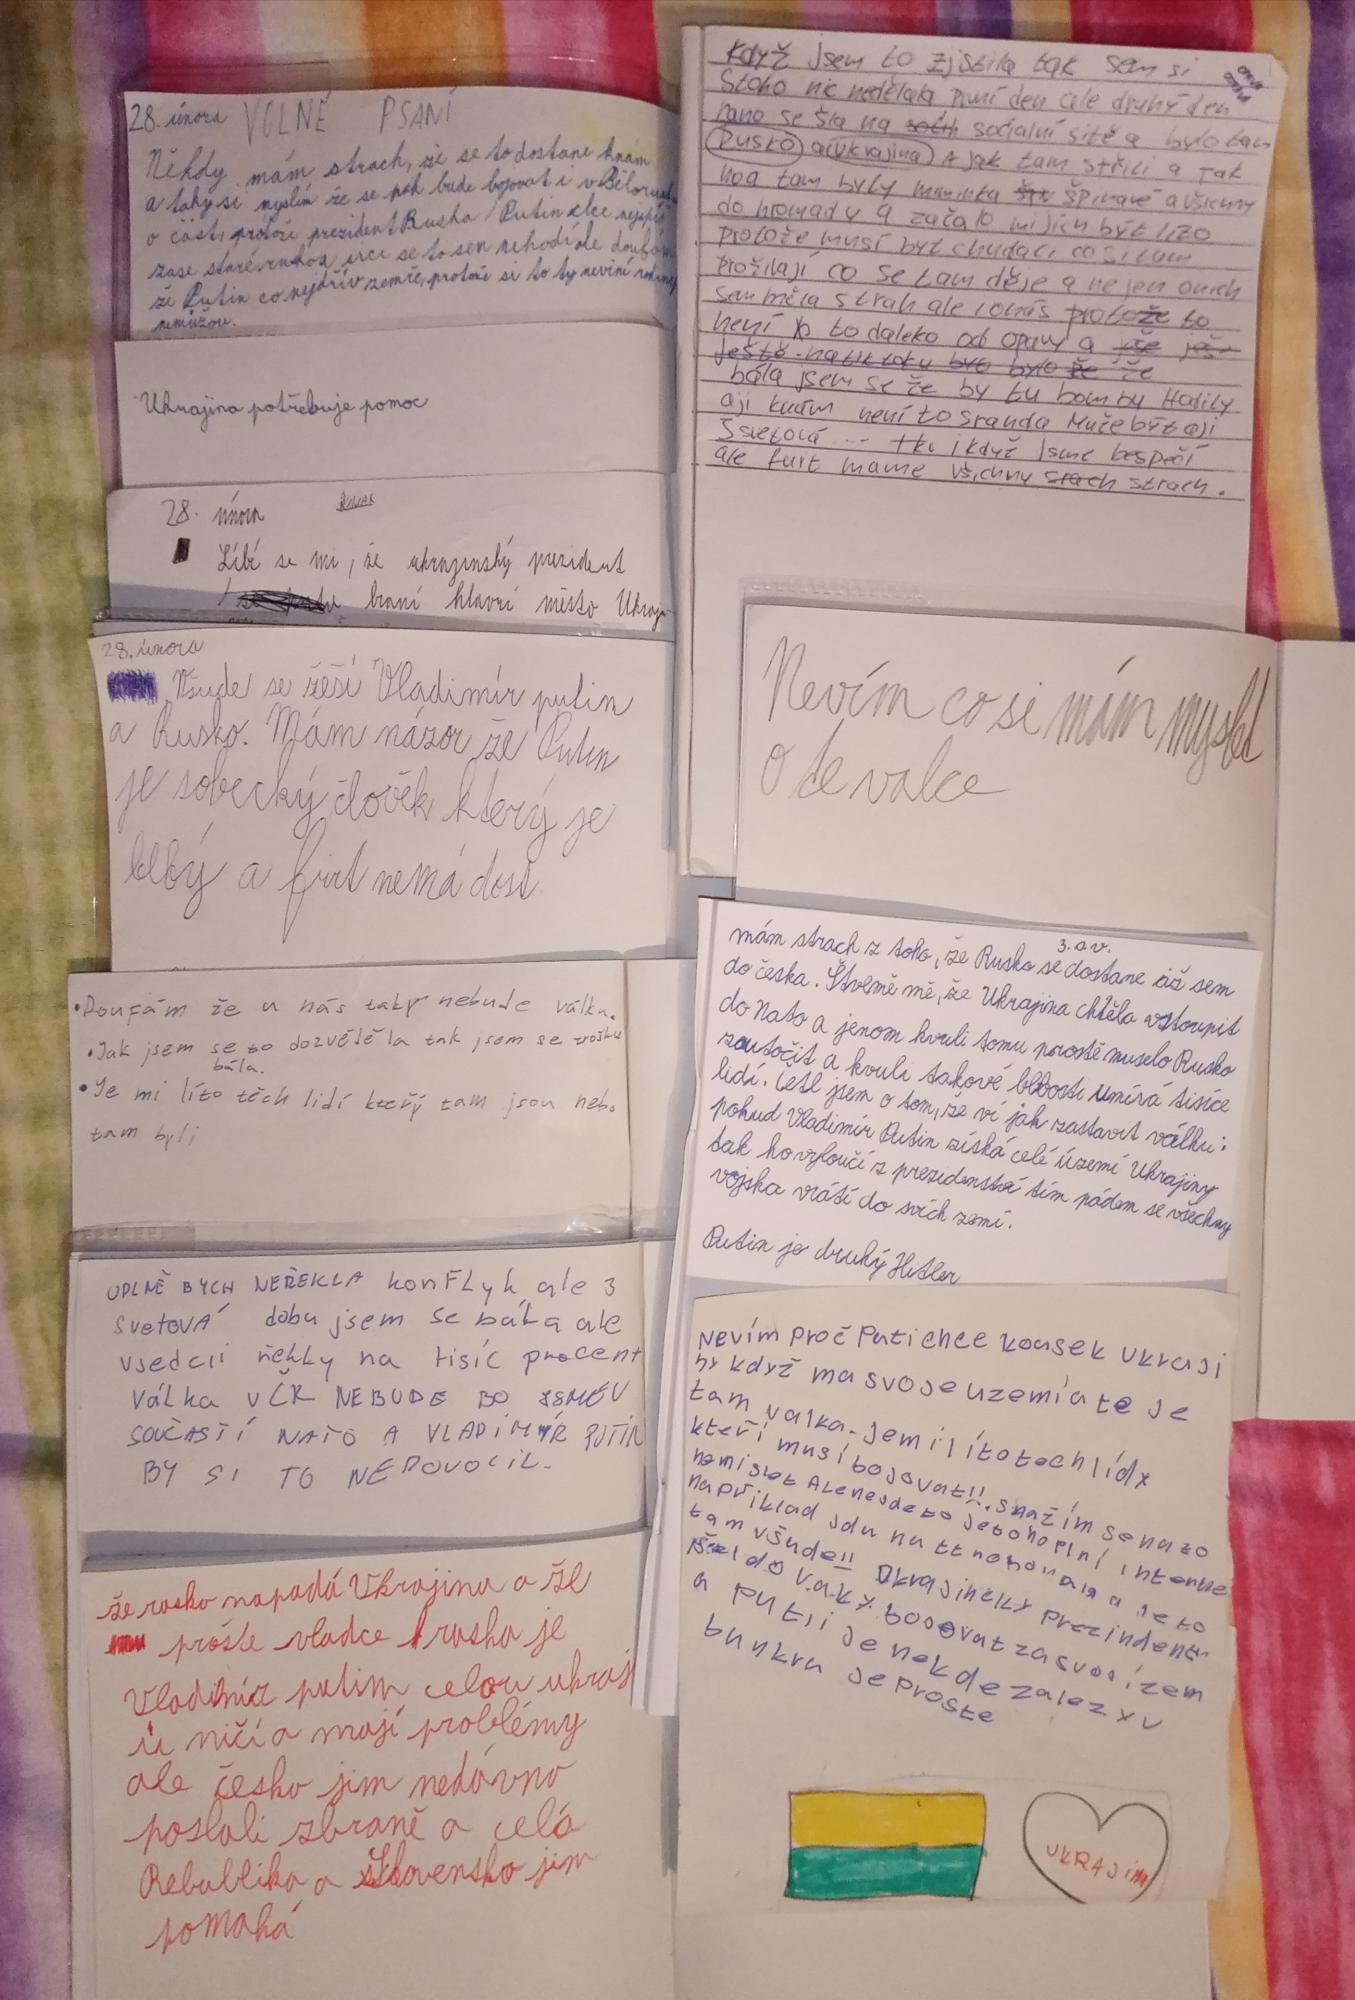 28. února VOLNÉ PSANÍ
Někdy mám strach, že se to dostane k nám
a taky si myslím že se pak bude bojovat i v
o část, protože prezident Ruska Putin chce
zase staré se to sem nehodí ale doufám
že Putin co nejdřív zemře, protože si to ty neviní
nemůžou.
Ukrajina potřebuje pomoc
28. února
Líbí se mi, že ukrajinský prezident
braní hlavní město
28. února
Všude se řěší Vladimír putin
a Rusko. Mám názor že Putin
je sobecký člověk který je
blbý a furt nemá dost.
• Doufám že u nás taky nebude válka.
• Jak jsem se to dozvěděla tak jsem se
bála.
• Je mi líto těch lidí kteří tam jsou nebo
tam byli
UPLNĚ BYCH NEŘEKLA konFLyk ale 3
SvetovÁ dobu jsem se bála ale
vsedcii řehky na tisíc procent
válka v ČR NEBUDE BO JSMEV
SOUČASTÍ NATO A VLADIMÝR PUTIN
BY SI TO NEDOVOLIL.
že rusko napadá Ukrajinu a že
prostě vladce ruska je
Vladimír putim celou ukraj
ničí a mají problémy
ale česko jim nedávno
poslali zbraně a celá
Rebublika a Slovensko jim
pomahá
Když jsem to zjistila tak sem si
stoho nic nedělala první den ale druhý den
rano se šla na socialní sitě a bylo tam
Rusko a (Ukrajina) A jak tam stříli a tak
noa tam byly miminka špinavé a všichny
do hromady a začalo mi jich být lizo
protože musí být chudaci co si tam
prožívají co se tam děje a nejen onich
sem měla strah ale i onás protože to
není to daleko od opavy a jěše ješt
ještě na tik toku byto bylo že že
bála jsem se že by tu bomby Hodily
aji knám není to sranda Muže být aji
3svetová... tki ikdyž jsme bespečí
ale furt mame všichny srach strach.
Nevím co si mám myslet
o té valce
3. a v.
mám strach z toho, že Rusko se dostane až sem
do česka. Štvemě mě, že Ukrajina chtěla vstoupit
do Nato a jenom kvuli tomu prostě muselo Rusko
zautočit a kvuli takové blbosti umírá tisíce
lidí. četl jsem o tom, že ví jak zastavit válku:
pokud Vladimír Putin získá celé území Ukrajiny
tak ho vyloučí z prezidenství tím pádem se všechny
vojska vrátí do svích zemí.
Putin je druhý Hitler
Nevím proč Puti chce kousek ukraji
ny když ma svoje uzemí a te je
tam valka. Je mi líto tech lídx
kteří musí bojovat!! snažím se na to
nemislet Ale nejde to je toho plní interne
například jdu na tt nebo a je to
tam všude!! Ukrajinckx prezindent
šel do valkx bojovat za svojí zem
a Putii je nekde zalezxv
bunkru je proste
UKRAJINA